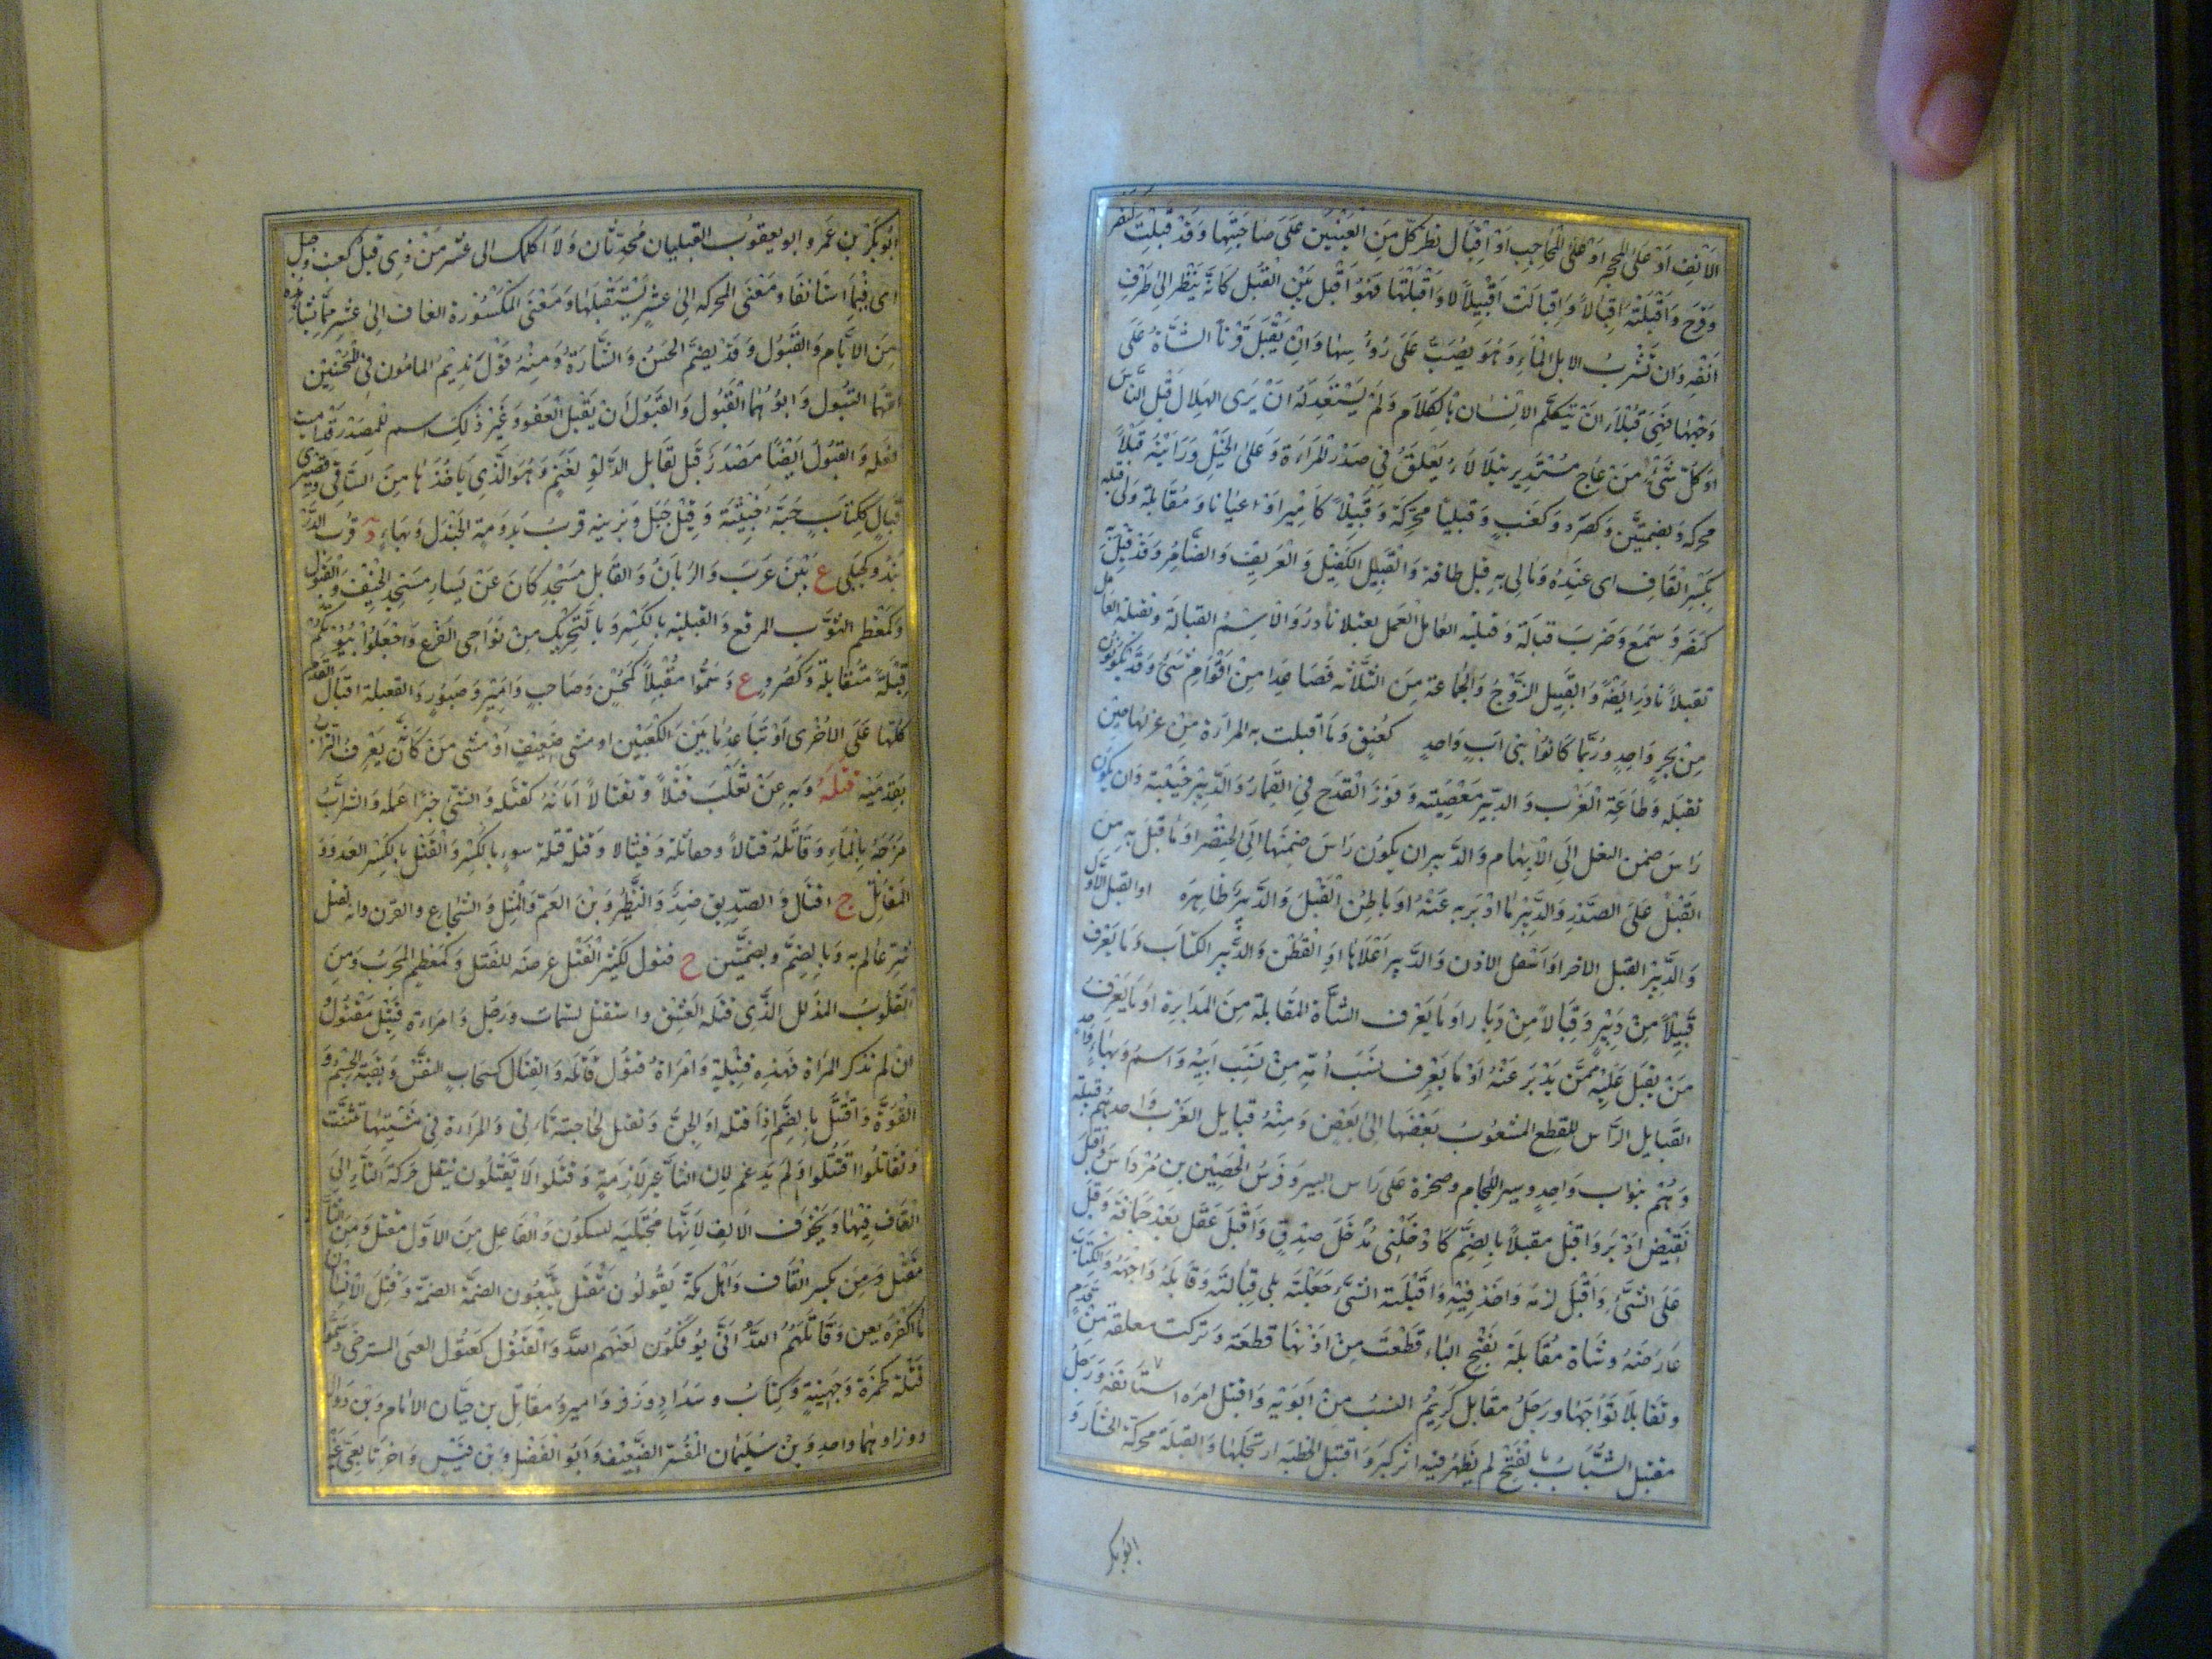 الانف او على المحجر او على الحاجب او اقبال نظر كل من العينين على صاحبتها وقد قبلت كنصر
وفرح واقبلته اقبالا واقبالت اقبيلالا واقبلتها فهو اقبل بين القبل كانه ينظر الى طرف
انفه وان تشرب الابل الماء وهو يصب على رؤسها وان يقبل قرنا الشاة على
وجهها فهى قبلاء ان يتكلم الانسان بالكلام ولم يستعد له ان يرى الهلال قبل الناس
او كل شئ من عاج مستدير يتلالاء يعلق فى صدر المراءة وعلى الخيل ورايته قبلا
محركة وبضمتين وكصرد وكعنب وقبليا محركة وقبيلا كامير اى عيانا ومقابلة ولى قبله
بكسر القاف اى عنده ومالى به قبل طاقة والقبيل الكفيل والعريف والضامر وقد قبل به
كنصر وسمع وضرب قبالة وقبلت العامل العمل تقبلا نادر والاسم القبالة وتقبله العامل
تقبلا نادر ايضا والقبيل الزوج والجماعة من الثلاثة فصاعدا من اقوام شتى وقد يكونون
من نجر واحد وربما كانوا بنى اب واحد كعنق وما اقبلت به المراءة من غزلها حين
تفتله وطاعة الرب والدبير معصيته وفوز القدح فى القمار والدبير خيبته وان يكون
راس ضمن النعل الى الابهام والدبير ان يكون راس ضمنها الى الخنصر او ما اقبل به من
الفتل على الصدر والدبير ما ادبر به عنه او باطن الفتل والدبير ظاهره او الفتل الاول
والدبير الفتل الاخر او اسفل الاذن والدبير اعلاها او القطن والدبير الكتان وما يعرف
قبيلا من دبير وقبالا من دبار او ما يعرف الشاة المقابلة من المدابرة او ما يعرف
من يقبل عليه ممن يدبر عنه او ما يعرف نسب امه من نسب ابيه واسم وبهاء واحد
القبايل الراس للقطع المشعوب بعضها الى بعض ومنه قبايل العرب واحدهم قبيلة
وهم بنو اب واحد وسير اللجام وصخرة على راس البير وفرس الحصين بن مرداس واقبل
نقيض ادبر واقبل مقبلا بالضم كادخلنى مدخل صدق واقبل عقل بعد حماقة وقبل
على الشئ واقبل لزمه واخذ فيه واقبلته الشئ جعلته يلى قبالته وقابله واجهه والكتاب
عارضه وشاة مقابلة بفتح الباء قطعت من اذنها قطعة وتركت معلقة من قدم
وتقابلا تواجها ورجل مقابل كريم النسب من ابويه واقتبل امره استانفه ورجل
مقتبل الشباب بالفتح لم يظهر فيه اثر كبر واقتبل الخطبة ارتجلها والقبلة محركة الخشار و
ابوبكر
ابوبكر بن عمرو ابو يعقوب القبليان محدثان ولا اكلمك الى عشر من ذى قبل كعنب وجبل
اى فيما استانف او معنى المحركة الى عشر يستقبلها ومعنى المكسورة القاف الى عشر مما تشاهده
من الايام والقبول وقد يضم الحسن والشارة ومنه قول نديم المامون فى الحسنين
امهما البتول وابوهما القبول والقبول ان يقبل العفو وغير ذلك اسم للمصدر قد اميت
فعله والقبول ايضا مصدر قبل القابل الدلو لغنم وهو الذى ياخذها من الساقى وقصيرى
قبال ككتاب حية خبيثة وقبل جبل وبزينه قرب دومة الجندل وبهاء د قرب الدر
بند وكحبلى ع بين عرب والريان والقابل مسجد كان عن يسار مسجد الخيف والقبول
وكمعظم الثوب المرقع والقبلية بالكسر وبالتحريك من نواحى الفرع واجعلوا بيوتكم
قبلة متقابلة وكصرد ع وسموا مقبلا كمحسن وصاحب وامير وصبور والقعبلة اقبال القدم
كلها على الاخرى او تباعد ما بين الكعبين او مشى ضعيف او مشى من كانه يغرف التراب
بقدميه قتله وبه عن ثعلب قتلا وتقتالا اماته كقتله والشئ خبرا علمه والشراب
مزجه بالماء وقاتله قتالا ومقاتلة وقيتالا وقتله قتلة سوء بالكسر والقتل بالكسر العدو و
المقاتل ج اقتال والصديق ضد والنظير وبن العم والمثل والشجاع والقرن وانه لقتل
شر عالم به وبالضم وبضمتين ج قتول لكثير القتل عرضه للقتل وكمعظم المجرب ومن
القلوب المذلل الذى قتله العشق واستقتل استمات ورجل وامراءة قتيل مقتول
ان لم تذكر المراة فهذه قتيلة وامراة قتول قاتلة والقتال كسحاب النفس وبقية الجسم و
القوة واقتتل بالضم اذا قتله او الجن وتقتل لحاجته تاءتى والمراءة فى مشيتها تثنت
وتقاتلوا اقتتلوا ولم يدغم لان التا غير لازمة وقتلوا الا يقتلون ينقل حركة التاء الى
القاف فيها ويحذف الالف لانها مجتلبة لسكون والفاعل من الاول مقتل ومن الثانى
مقتل ومن بكسر القاف واهل مكة يقولون مقتل يتبعون الضمة الضمة وقتل الانسان
ما اكفره لعن وقاتلهم الله انى يوفكون لعنهم الله والقتول كعثول العيى المسترخى وسموا
قتلة كحمزة وجهينة وكتاب وشداد وزفر وامير ومقاتل بن حيان الامام وبن دوال
دوز او هما واحد وبن سليمان المفسر الضعيف وابو الفضل وبن قيس واخر تابعى غير